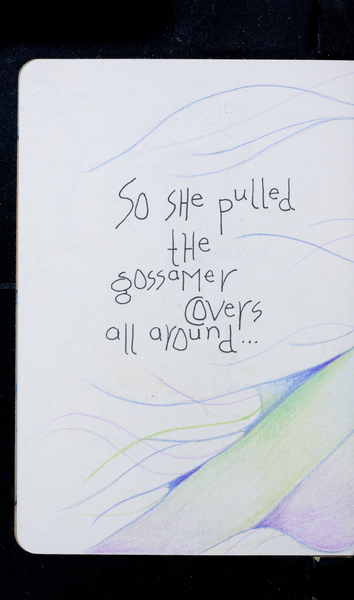 So sHe pulled
tHe
gossaMer
covers
all around...